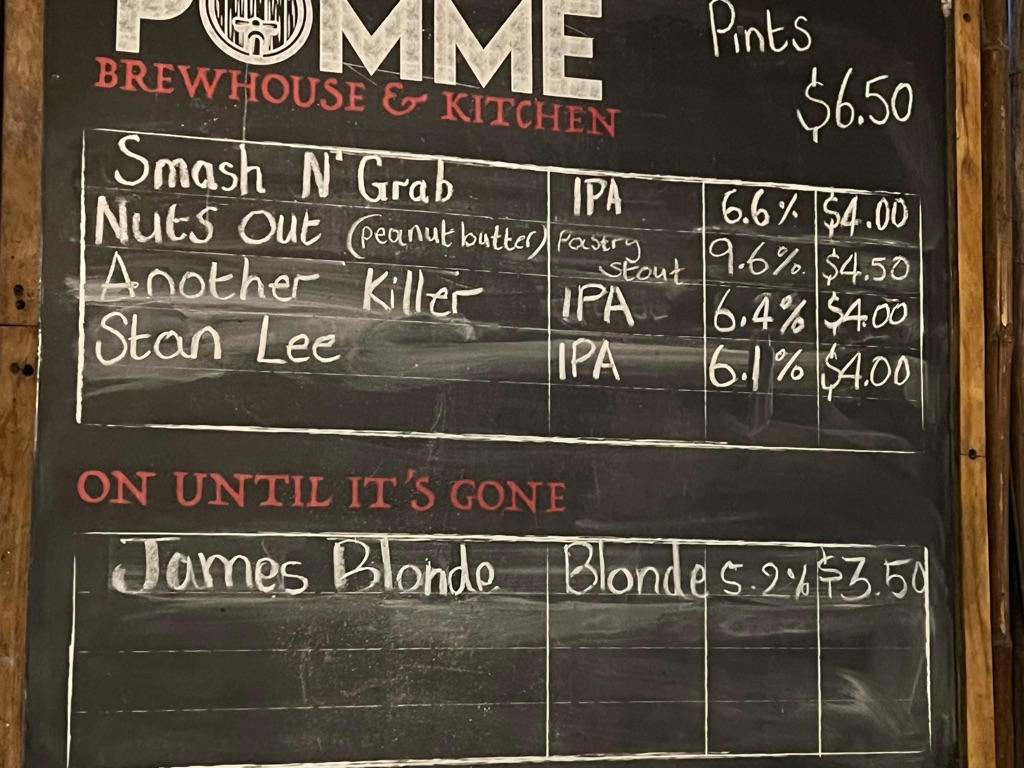 POMME
BREWHOUSE & KITCHEN
Pints
$6.50
Smash N' Grab IPA 6.6% $4.00
Nuts Out (peanut butter) Pastry stout 9.6% $4.50
Another Killer IPA 6.4% $4.00
Stan Lee IPA 6.1% $4.00
ON UNTIL IT'S GONE
James Blonde Blonde 5.2% $3.50